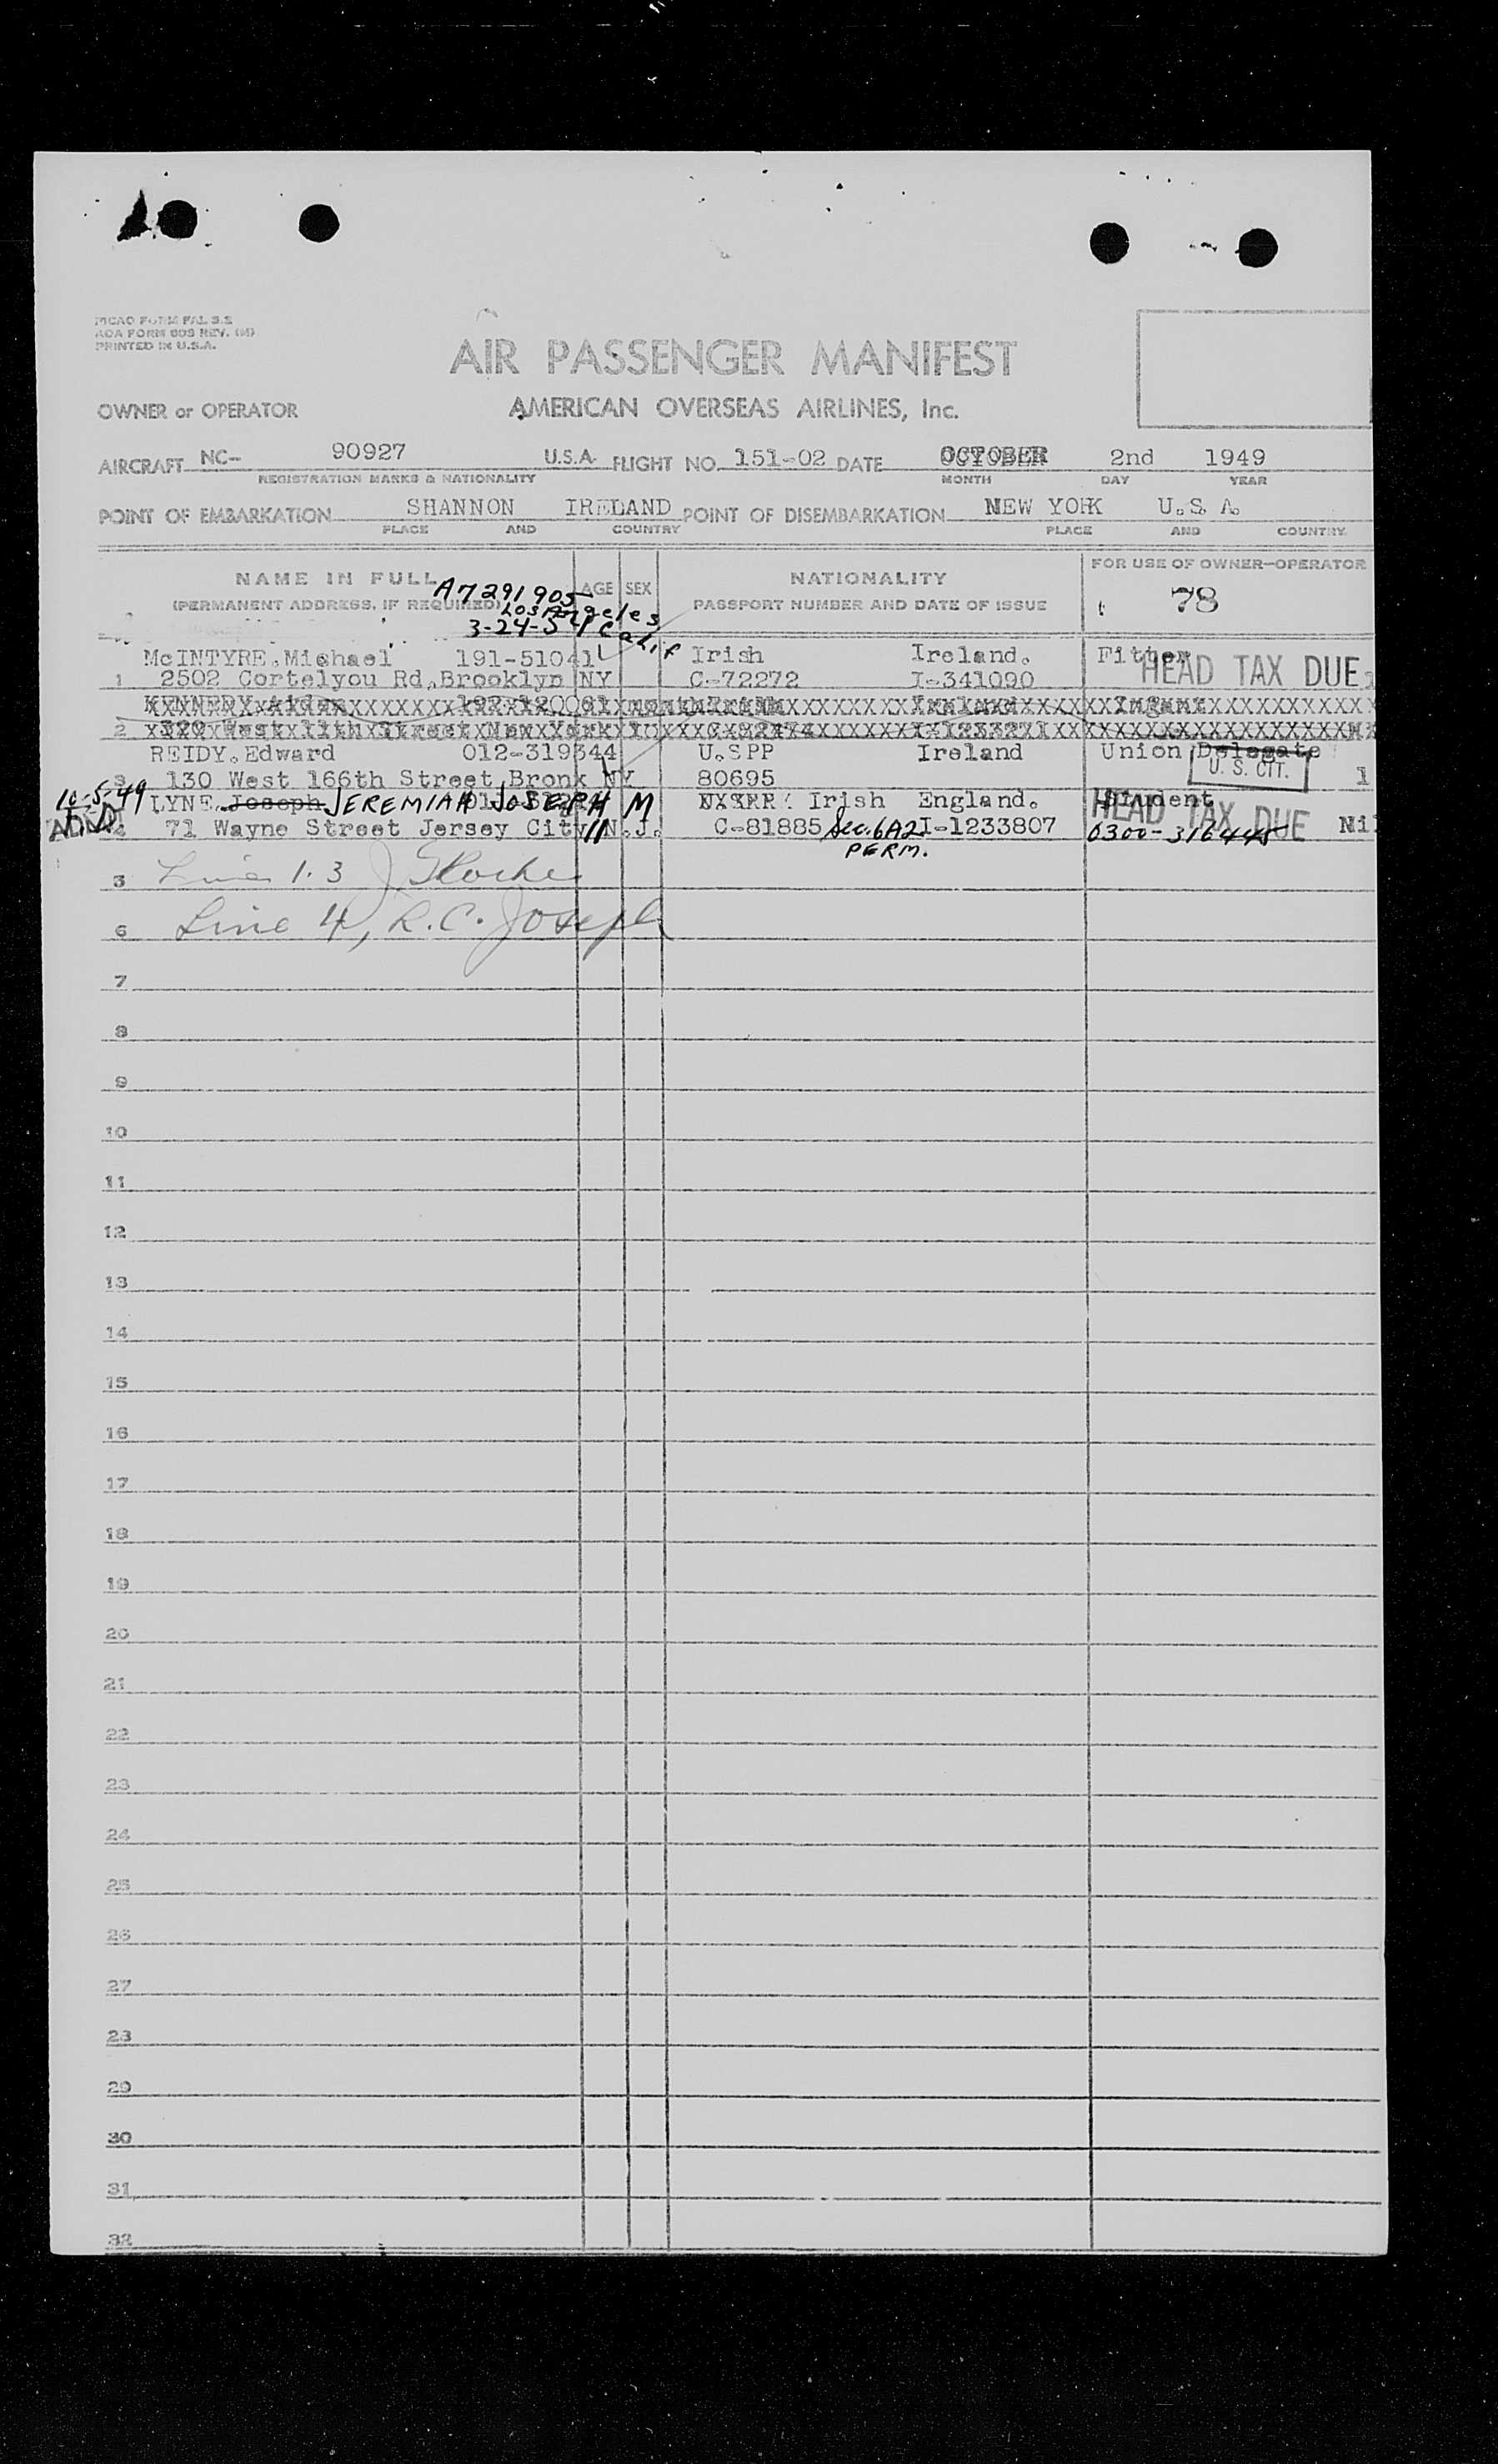 AOA FORM 609 REV.
PRINTED IN U.S.A.
AIR PASSENGER MANIFEST
OWNER or OPERATOR AMERICAN OVERSEAS AIRLINES, Inc.
AIRCRAFT NC- 90927 U.S.A. FLIGHT NO. 151-02 DATE OCTOBER 2nd 1949
REGISTRATION MARKS & NATIONALITY MONTH DAY YEAR
POINT OF EMBARKATION SHANNON IRELAND POINT OF DISEMBARKATION NEW YORK U.S.A.
PLACE AND COUNTRY PLACE AND COUNTRY
NAME IN FULL AGE SEX NATIONALITY FOR USE OF OWNER-OPERATOR
A7291905
(PERMANENT ADDRESS, IF REQUIRED) PASSPORT NUMBER AND DATE OF ISSUE 78
Los Angeles
3-24-51 Calif
McINTYRE.Michael 191-51041 Irish Ireland. Fitter HEAD TAX DUE
1 2502 Cortelyou Rd.Brooklyn NY C-72272 I-341090
KENNEDY Aiden Irish Ireland Infant
2 West 11th Street New York
REIDY.Edward 012-319344 U.S PP Ireland Union Delegate
3 130 West 166th Street Bronx NY 80695 U. S. CIT. 1
10-5-49 LYNE. Joseph JEREMIAH JOSEPH M Irish England. Student
4 71 Wayne Street Jersey City N.J. 11 C-81885 Sec. 6A2 I-1233807 HEAD TAX DUE 0300-316445 Nil
PERM.
5 1. 3
6 Line 4, R.C. Joseph
7
8
9
10
11
12
13
14
15
16
17
18
19
20
21
22
23
24
25
26
27
28
29
30
31
32